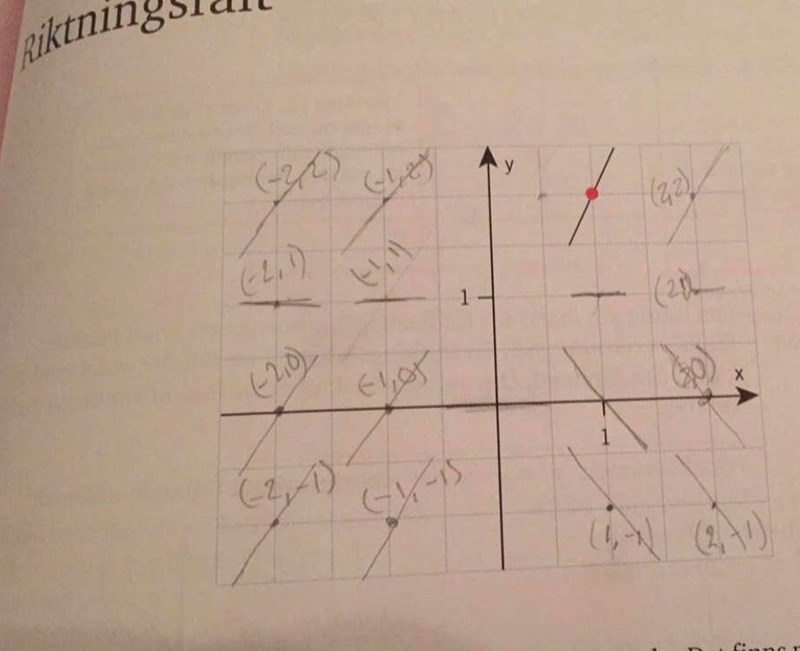 Riktningsfält
(-2,2) (-1,2) y (2,2)
(-2,1) (-1,1) 1 (2,1)
(-2,0) (-1,0) x
1
(-2,-1) (-1,-1) (1,-1) (2,-1)
Det finns